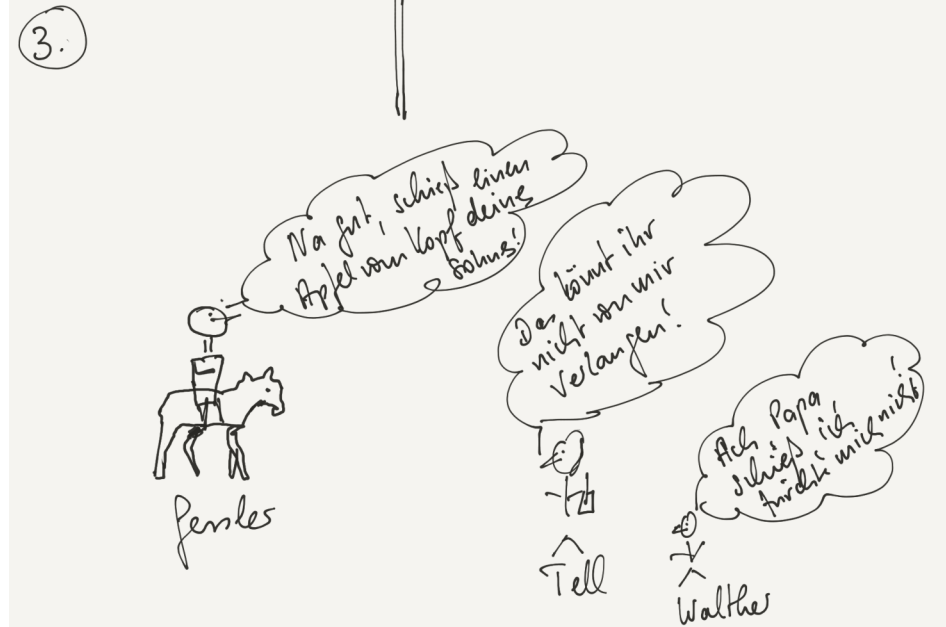 3.
Na gut, schieß einen
Apfel vom Kopf deines
Sohns!
Das könnt ihr
nicht von mir
verlangen!
Ach Papa,
schieß, ich
fürcht mich nicht!
Gessler
Tell
Walther